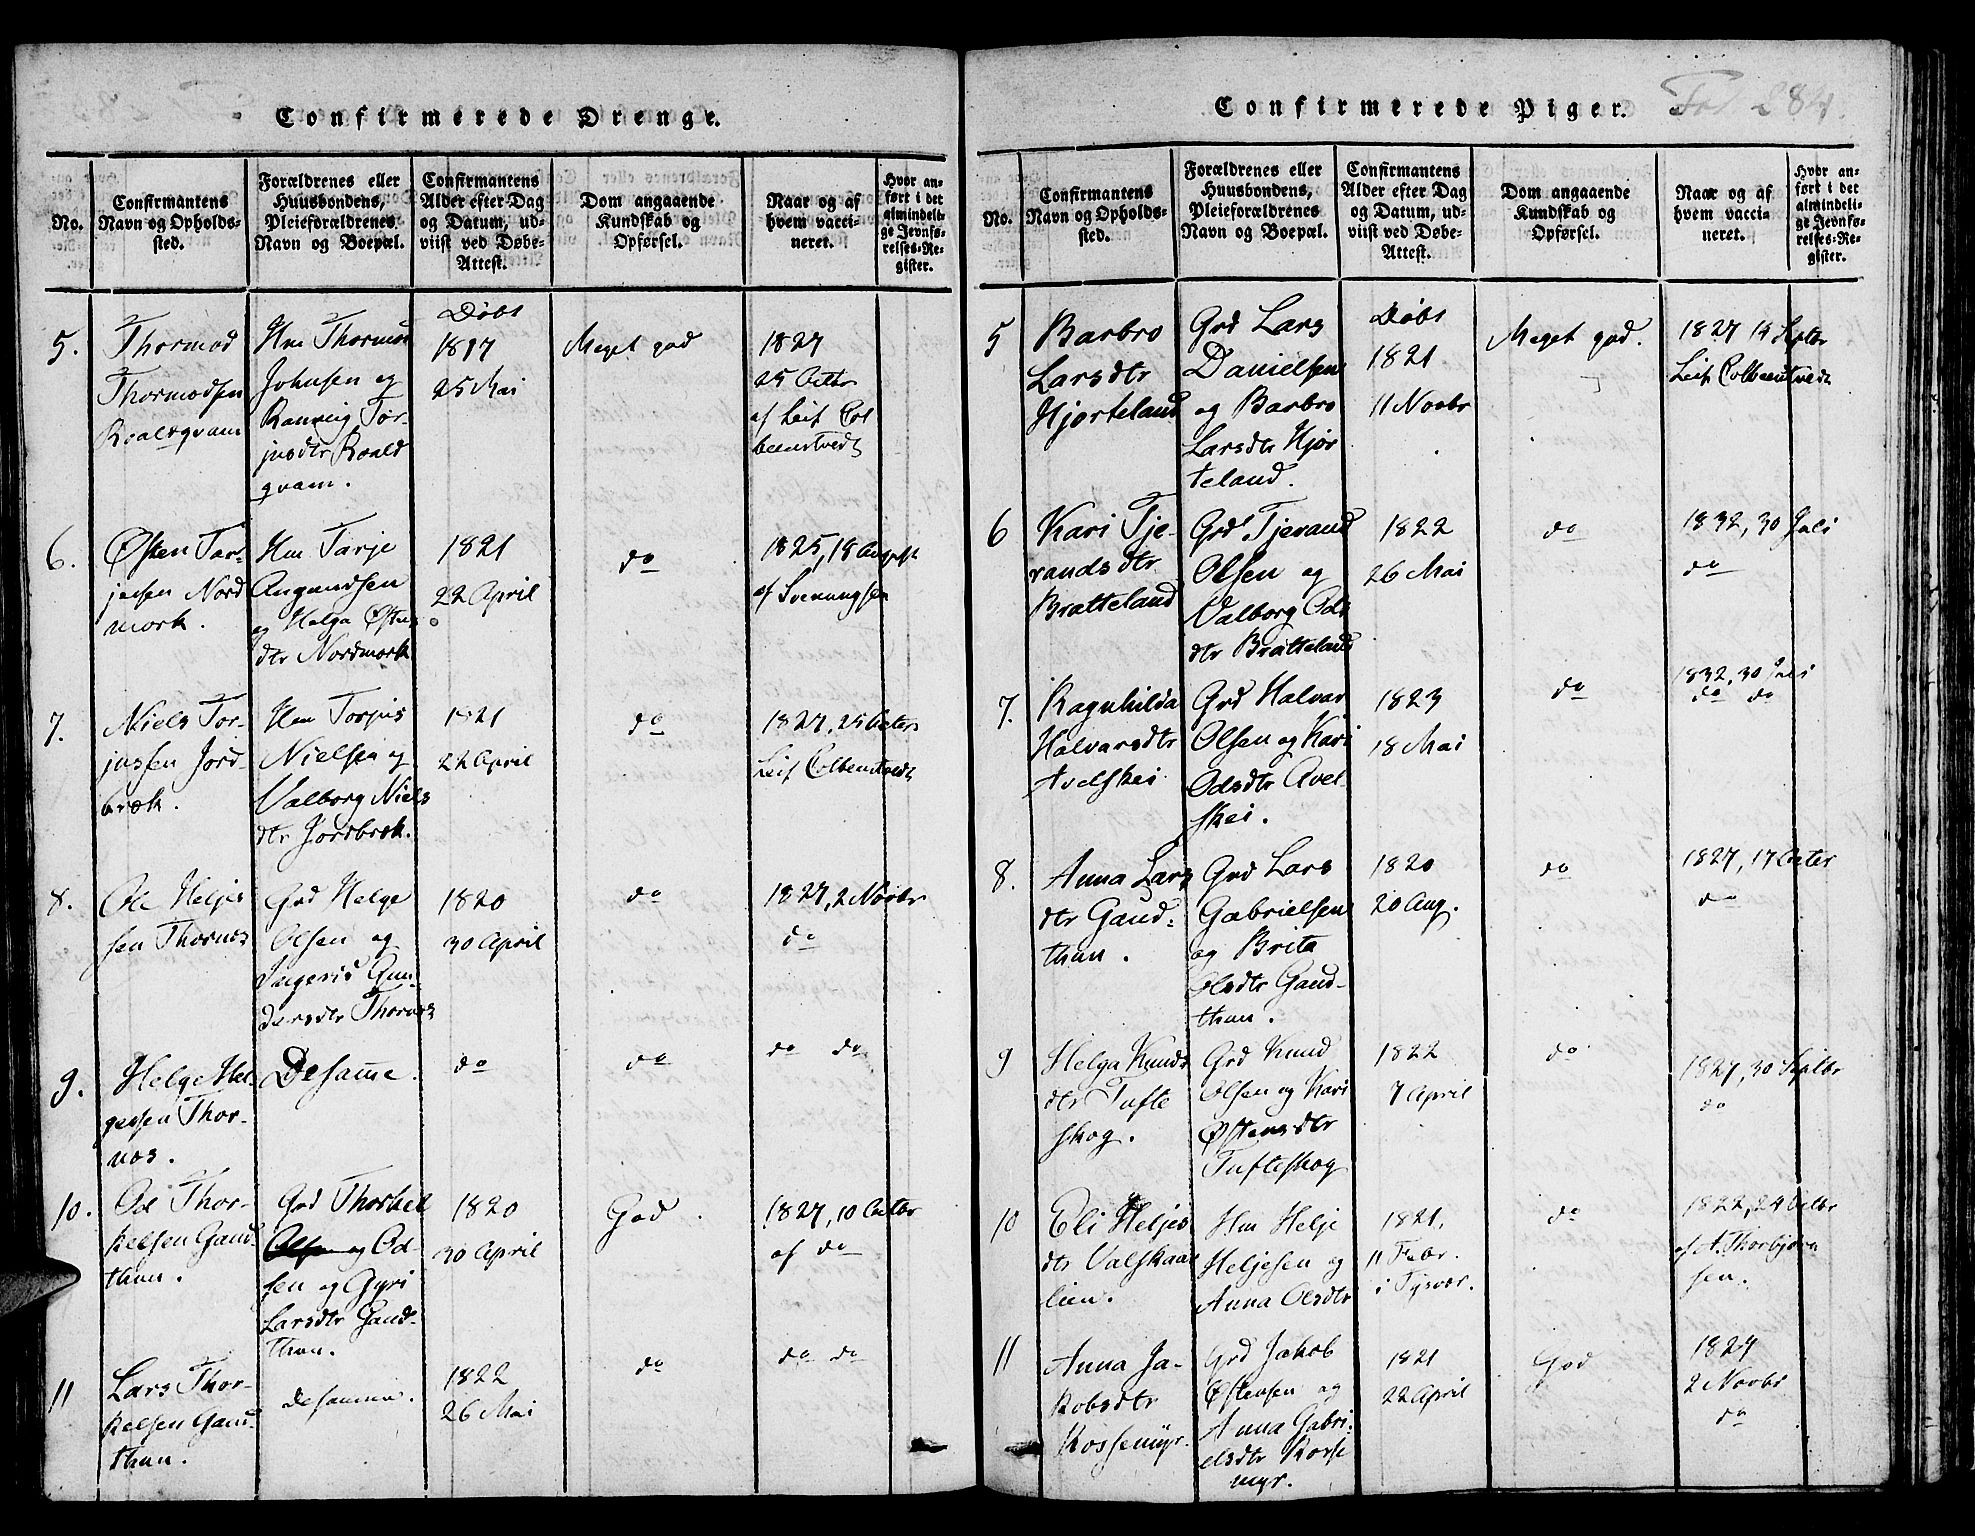 Confirmerede Drenge.
No.
Confirmantens
Navn og Opholds-
sted.
Forældrenes eller
Huusbondens,
Pleieforældrenes
Navn og Boepæl.
Confirmantens
Alder efter Dag
og Datum, ud-
viist ved Døbe-
Attest.
Dom angaaende
Kundskab og
Opførsel.
Naar og af
hvem vacci-
neret.
Hvor an-
ført i det
almindeli-
ge Jevnfø-
relses-Re-
gister.
5.
Thormod
Thormodsen
Roalsqvam
Hm Thormod
Johnsen og
Rannig Tor-
jusdtr Roald
qvam.
Døbt
1817
25 Mai
Meget god
1827
25 Octbr
af Leif Col
beenstvedt
6.
Østen Tar-
jesen Nord
mork.
Hm Tarje
Angundsen
og Helga Østens
dtr Nordmork
1821
22 April
do
1825, 18 August
af Svenungsen
7.
Niels Tor-
jussen Jord-
bræk.
Hm Torjus
Nielsen og
Valborg Niels
dtr Jordbræk.
1821
22 April
do
1827, 25 Octbr
Leif Colbenstvedt
8.
Ole Heljes
sen Thornes
Grd Helge
Olsen og
Ingeris Gun-
dersdtr Thornes
1820
30 April
do
1827, 2 Novbr
do
9.
Helge Hel
gessen Thor-
næs.
Desamme.
do
do
do do
10.
Od Thor-
kelsen Gaud-
than.
Grd Thorkel
Olsen og Od-
sen og Gyri
Larsdtr Gaud-
than.
1820
30 April
God
1827, 10 Octbr
af do
11
Lars Thor-
kelsen Gaud
than.
desamme.
1822
26 Mai
do
do do
Confirmerede Piger.
Fol 284.
No.
Confirmantens
Navn og Opholds-
sted.
Forældrenes eller
Huusbondens,
Pleieforældrenes
Navn og Boepæl.
Confirmantens
Alder efter Dag
og Datum, ud-
viist ved Døbe-
Attest.
Dom angaaende
Kundskab og
Opførsel.
Naar og af
hvem vacci-
neret.
Hvor an-
ført i det
almindeli-
ge Jevnfø-
relses-Re-
gister.
5
Barbro
Larsdtr
Hjorteland
Grd Lars
Danielsen
og Barbro
Larsdtr Hjor
teland.
Døbt
1821
11 Novbr
Meget god.
1827 14 Septbr
Leif Colbeenstvedt
6
Kari Tje-
randsdtr
Bratteland
Grd Tjerand
Olsen og
Valborg Ods
dtr Bratteland
1822
26 Mai
do
1832, 30 Juli
do
7.
Ragnhilda
Halvarsdtr
Avelskei
Grd Halvar
Olsen og Kari
Odsdtr Avel-
skei.
1823
18 Mai
do
1832, 30 Juli
do do
8.
Anna Lars
dtr Gaud-
than.
Grd Lars
Gabrielsen
og Brita
Olsdtr Gaud-
than.
1820
20 Aug.
do
1827, 17 Octbr
do
9
Helga Knuds
dtr Tufte
skog.
Grd Knud
Olsen og Kari
Østensdtr
Tufteskog
1822
7 April
do
1827, 30 Septbr
do
10
Eli Heljes
dtr Valskaar
lien.
Hm Helje
Heljesen og
Anna Olsdtr
1821,
11 Febr.
i Tysvær.
do
1822, 24 Octbr
af A. Thorbjørn
sen.
11
Anna Ja-
kobsdtr
Kossemyr.
Grd Jakob
Østensen og
Anna Gabri-
elsdtr Kosse
myr.
1821
22 April
God
1827
2 Novbr
do